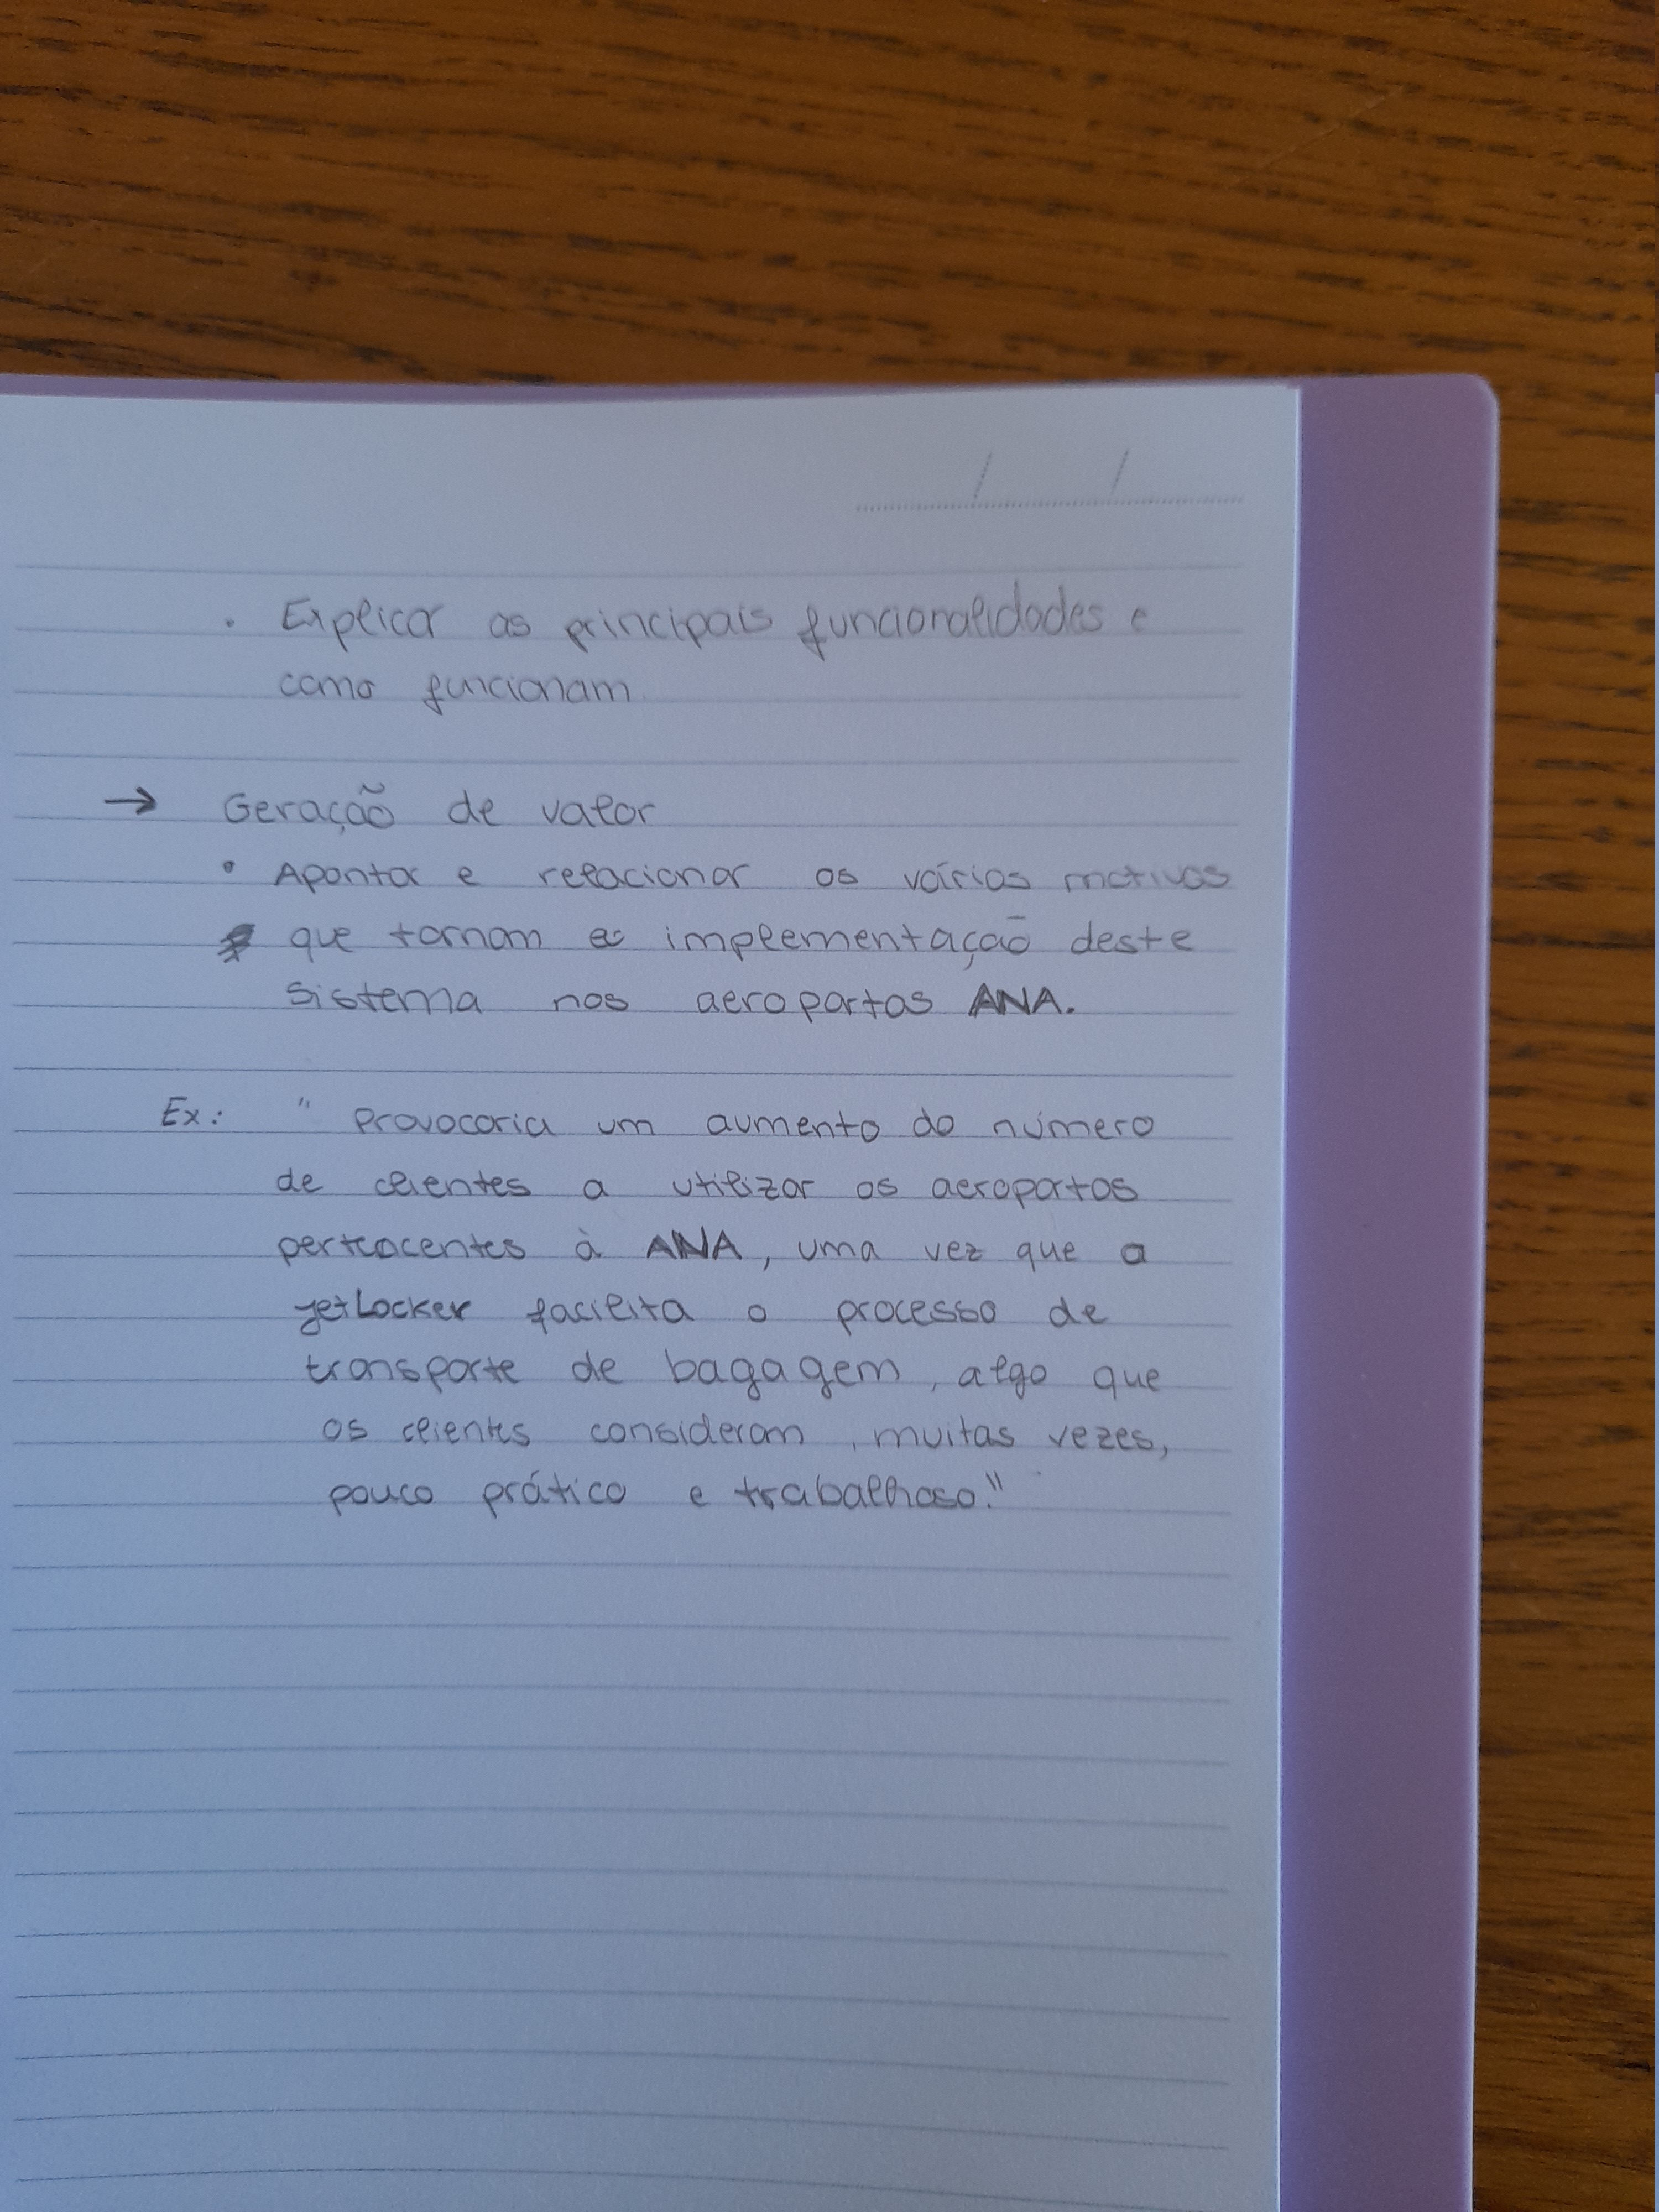 . Explicar as principais funcionalidades e
como funcionam
→ Geração de valor
• Apontar e relacionar os vários motivos
que tornam a implementação deste
sistema nos aeroportos ANA.
Ex: " Provocaria um aumento do número
de clientes a utilizar os aeroportos
pertecentes à ANA, uma vez que a
jetLocker facilita o processo de
transporte de bagagem, algo que
os clientes consideram, muitas vezes,
pouco prático e trabalhoso."